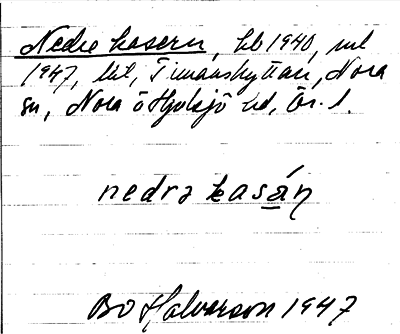 Nedre kasern, hb 1940, ml
1947, bit, Timanshyttan, Nora
sn, Nora o Hjulsjö hd, Ör. l.
nedrə kasán
Bo Halvarson 1947